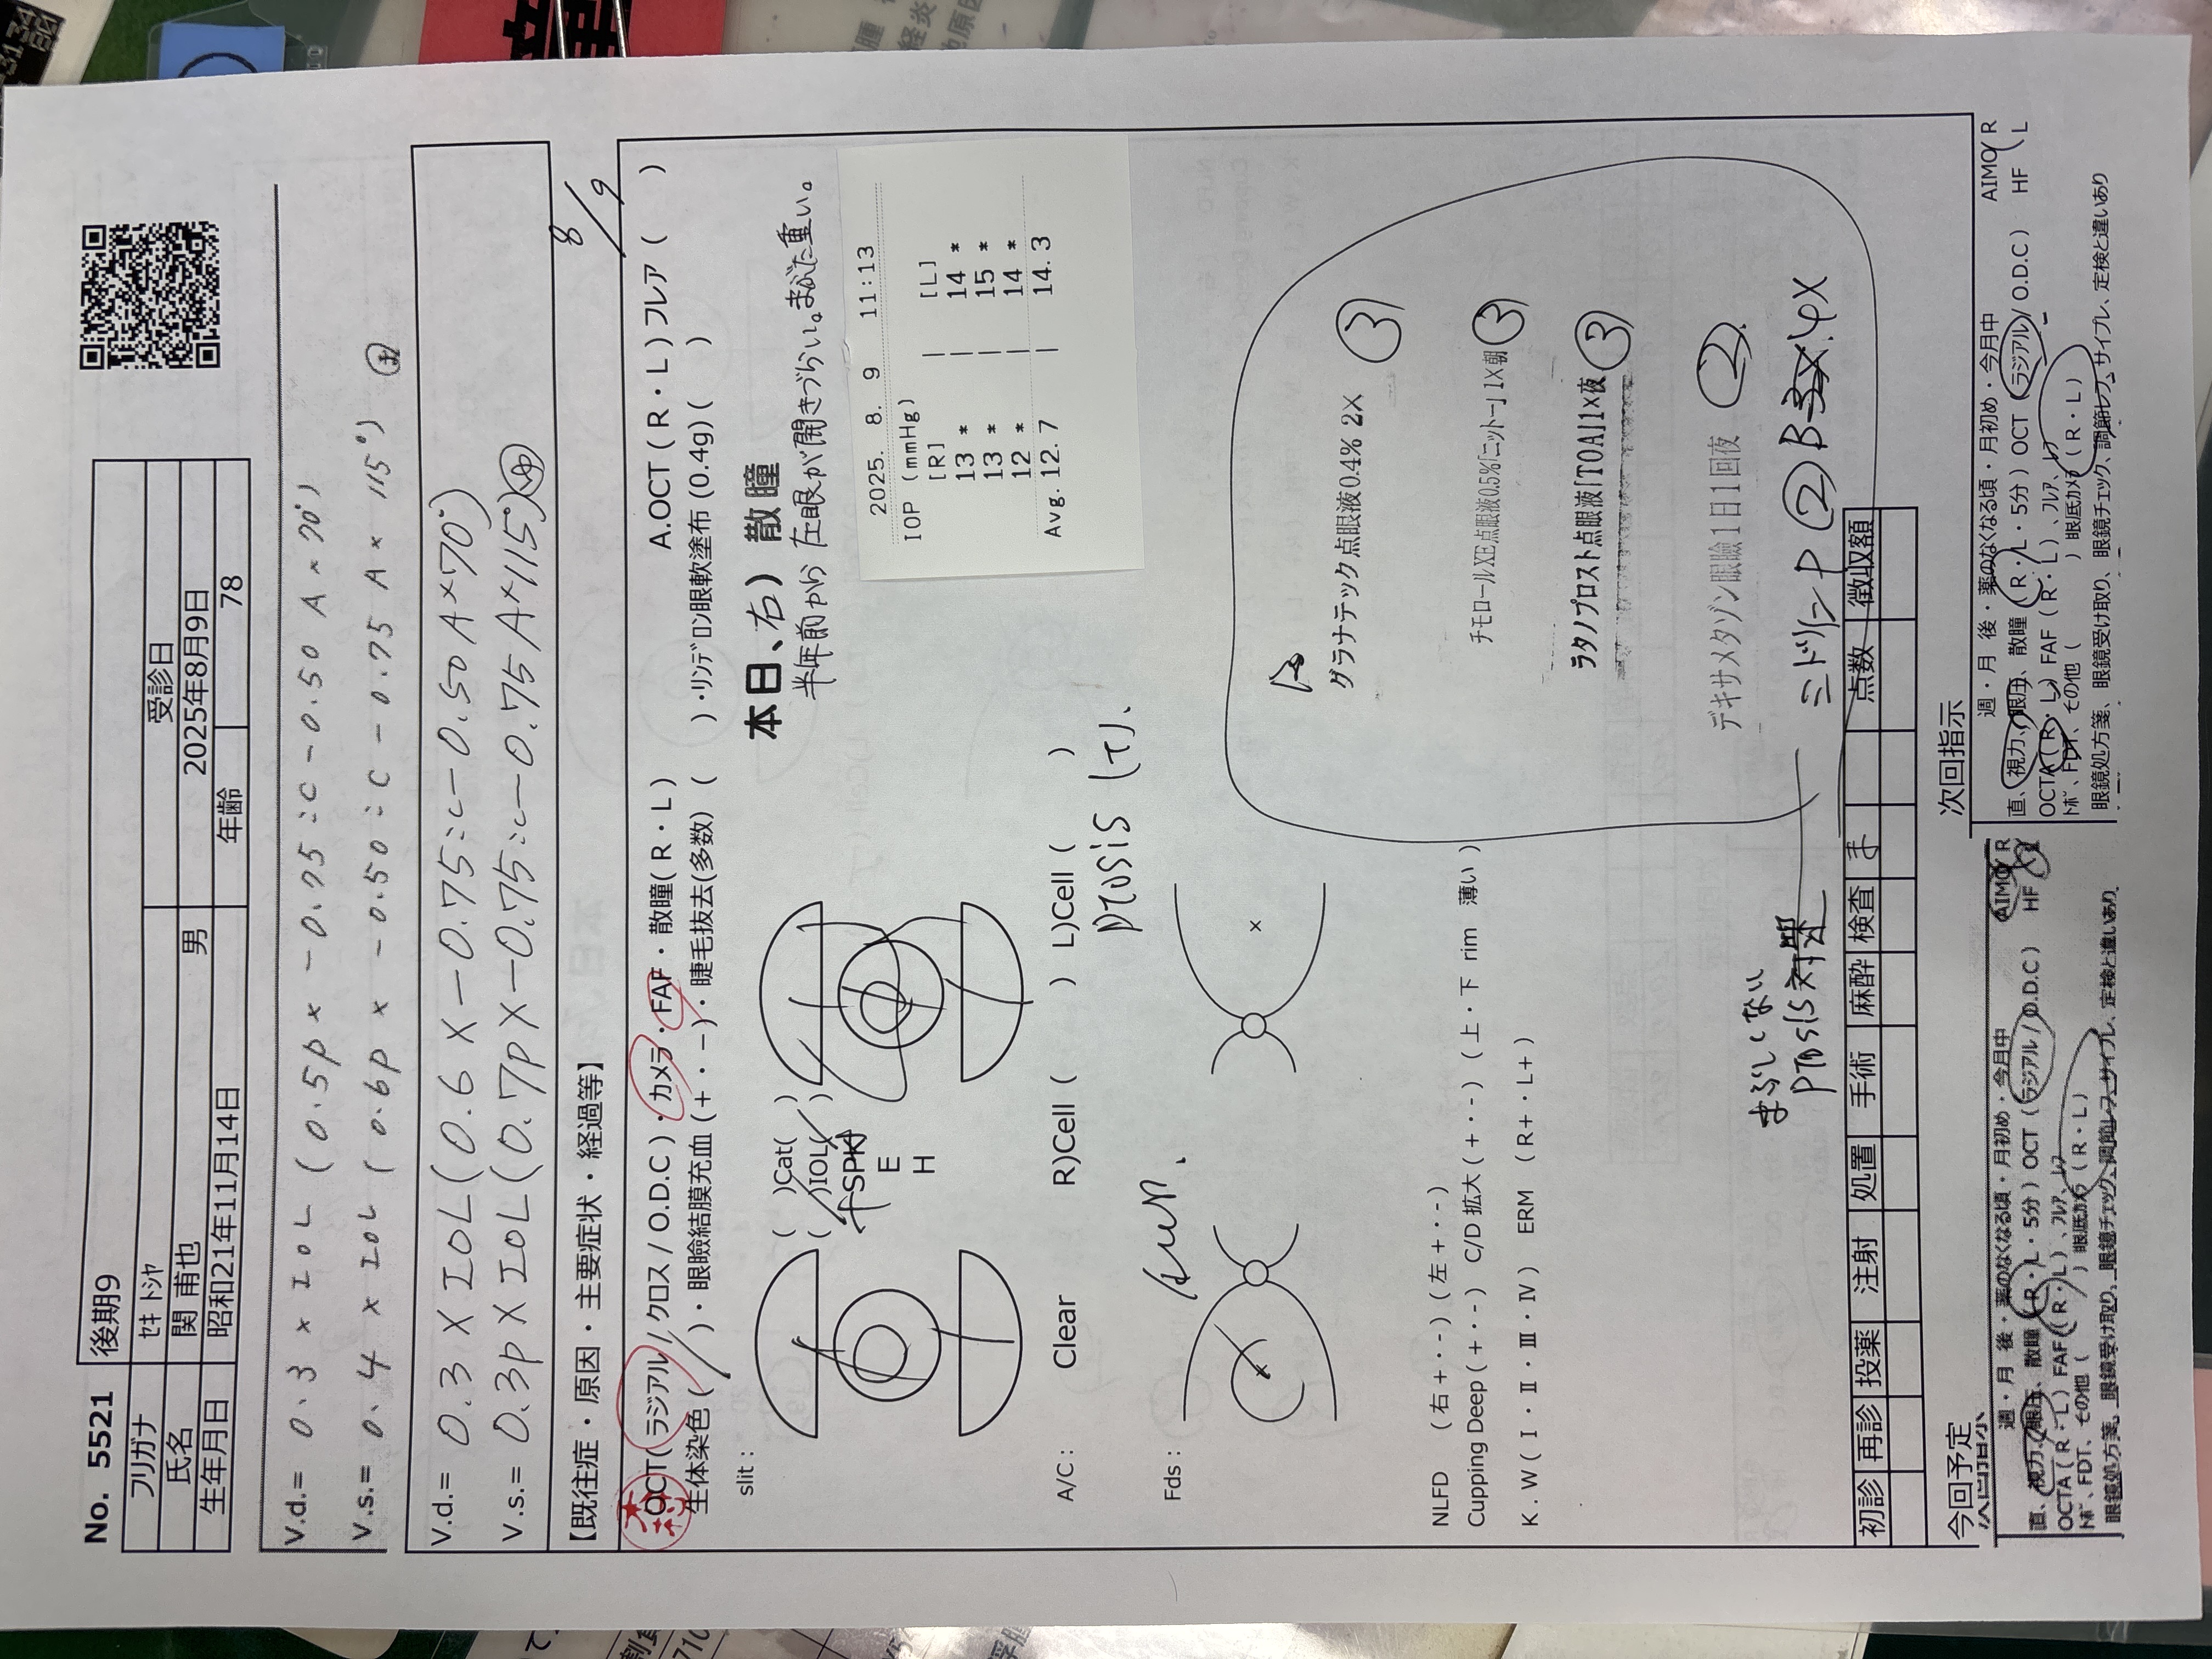 No. 5521 後期9
フリガナ ｾｷ ﾄｼﾔ 受診日
氏名 関 甫也 男 2025年8月9日
生年月日 昭和21年11月14日 年齢 78
V.d.= 0.3 × IOL ( 0.5p × -0.75 = C - 0.50 A × 70°)
V.s.= 0.4 × IOL ( 0.6p × -0.50 = C - 0.75 A × 115°)
V.d.= 0.3 × IOL ( 0.6 × -0.75 = C - 0.50 A × 70°)
V.s.= 0.3p × IOL ( 0.7p × -0.75 = C - 0.75 A × 115°)
【既往症・原因・主要症状・経過等】 8/9
OCT( ラジアル / クロス / O.D.C )・カメラ・FAF・散瞳( R・L ) A.OCT ( R・L ) フレア ( )
生体染色 ( / )・眼瞼結膜充血 (+・-)・睫毛抜去(多数) ( )・ﾘﾝﾃﾞﾛﾝ眼軟塗布 (0.4g) ( )
slit :
( )Cat( )
( )IOL( )
SPK
E
H
本日、右) 散瞳
半年前から 左眼が開きづらい。まぶた重い。
2025. 8. 9 11:13
IOP (mmHg)
[R] | [L]
13 * | 14 *
13 * | 15 *
12 * | 14 *
Avg. 12.7 | 14.3
A/C : Clear R)Cell ( ) L)Cell ( )
ptosis (+).
Fds :
グラナテック点眼液0.4% 2× ③
チモロールXE点眼液0.5%「ニットー」1×朝 ③
ラタノプロスト点眼液「TOA」1×夜 ③
デキサメタゾン眼瞼1日1回夜 ②
ミドリンP ② B 3× 4×
NLFD (右 +・-) (左 +・-)
Cupping Deep (+・-) C/D 拡大 (+・-) (上・下 rim 薄い)
K.W ( Ⅰ・Ⅱ・Ⅲ・Ⅳ ) ERM ( R+・L+ )
まぶしくない
ptosis対策
初診 再診 投薬 注射 処置 手術 麻酔 検査 ま 点数 徴収額
今回予定
次回指示
週・月 後・薬のなくなる頃・月初め・今月中 AIMO R
直、視力、眼圧、散瞳 ( R・L・5分 ) OCT ( ラジアル / O.D.C ) HF L
OCTA ( R・L ) FAF ( R・L )、ﾌﾚｱ、ﾚﾌ
ﾄﾎﾟ、FDT、その他 ( ) 眼底ｶﾒﾗ ( R・L )
眼鏡処方箋、眼鏡受け取り、眼鏡チェック、調節レフ、サイプレ、定検と違いあり
次回指示
週・月 後・薬のなくなる頃・月初め・今月中 AIMO R
直、視力、眼圧、散瞳 ( R・L・5分 ) OCT ( ラジアル / O.D.C ) HF L
OCTA ( R・L ) FAF ( R・L )、ﾌﾚｱ、ﾚﾌ
ﾄﾎﾟ、FDT、その他 ( ) 眼底ｶﾒﾗ ( R・L )
眼鏡処方箋、眼鏡受け取り、眼鏡チェック、調節レフ、サイプレ、定検と違いあり